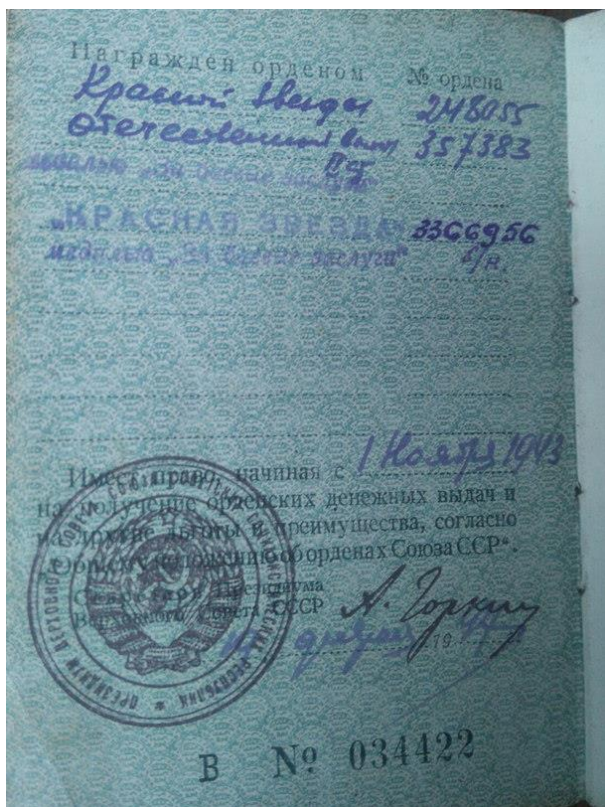 Награжден орденом № ордена
Красной Звезды 248055
Отечественной войны 357383
II ст
медалью „За боевые заслуги“
„КРАСНАЯ ЗВЕЗДА“ 3366956
медалью „За боевые заслуги“ б/н
Имеет право, начиная с 1 Ноября 1943
на получение орденских денежных выдач и
на другие льготы и преимущества, согласно
„Общему положению об орденах Союза ССР“.
Секретарь Президиума
Верховного Совета СССР А. Горкин
19
В № 034422